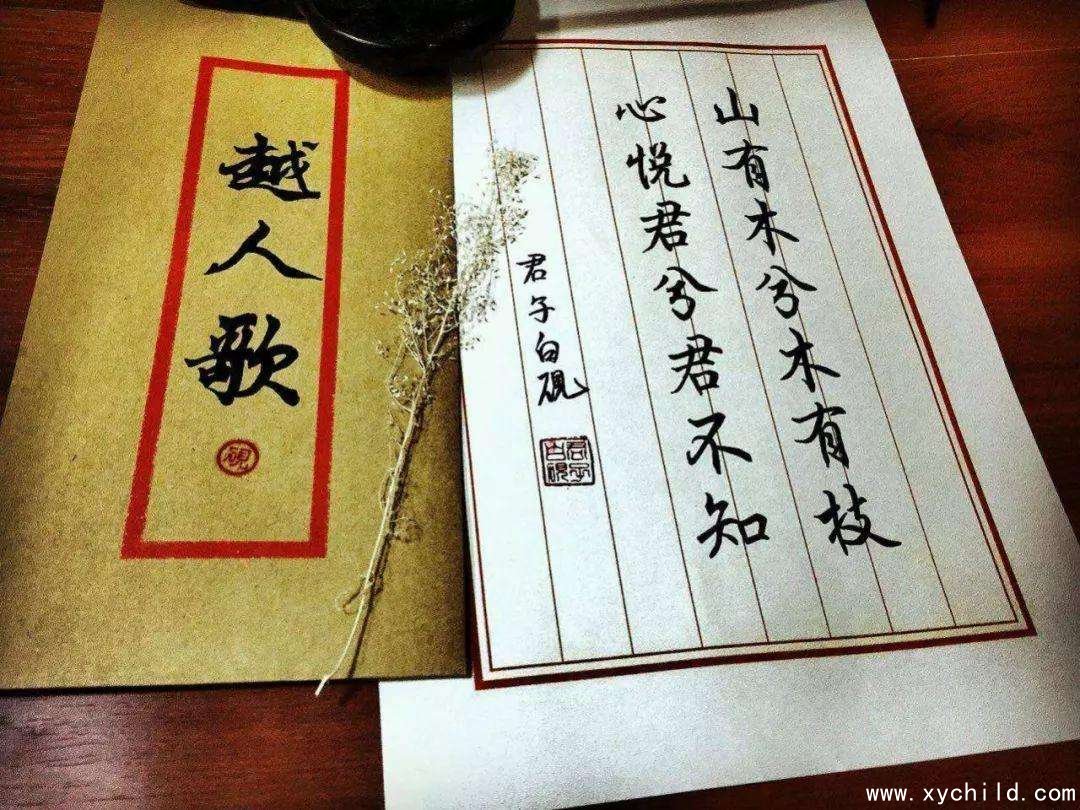 越人歌
砚
山有木兮木有枝
心悦君兮君不知
君子白砚
www.xychild.com